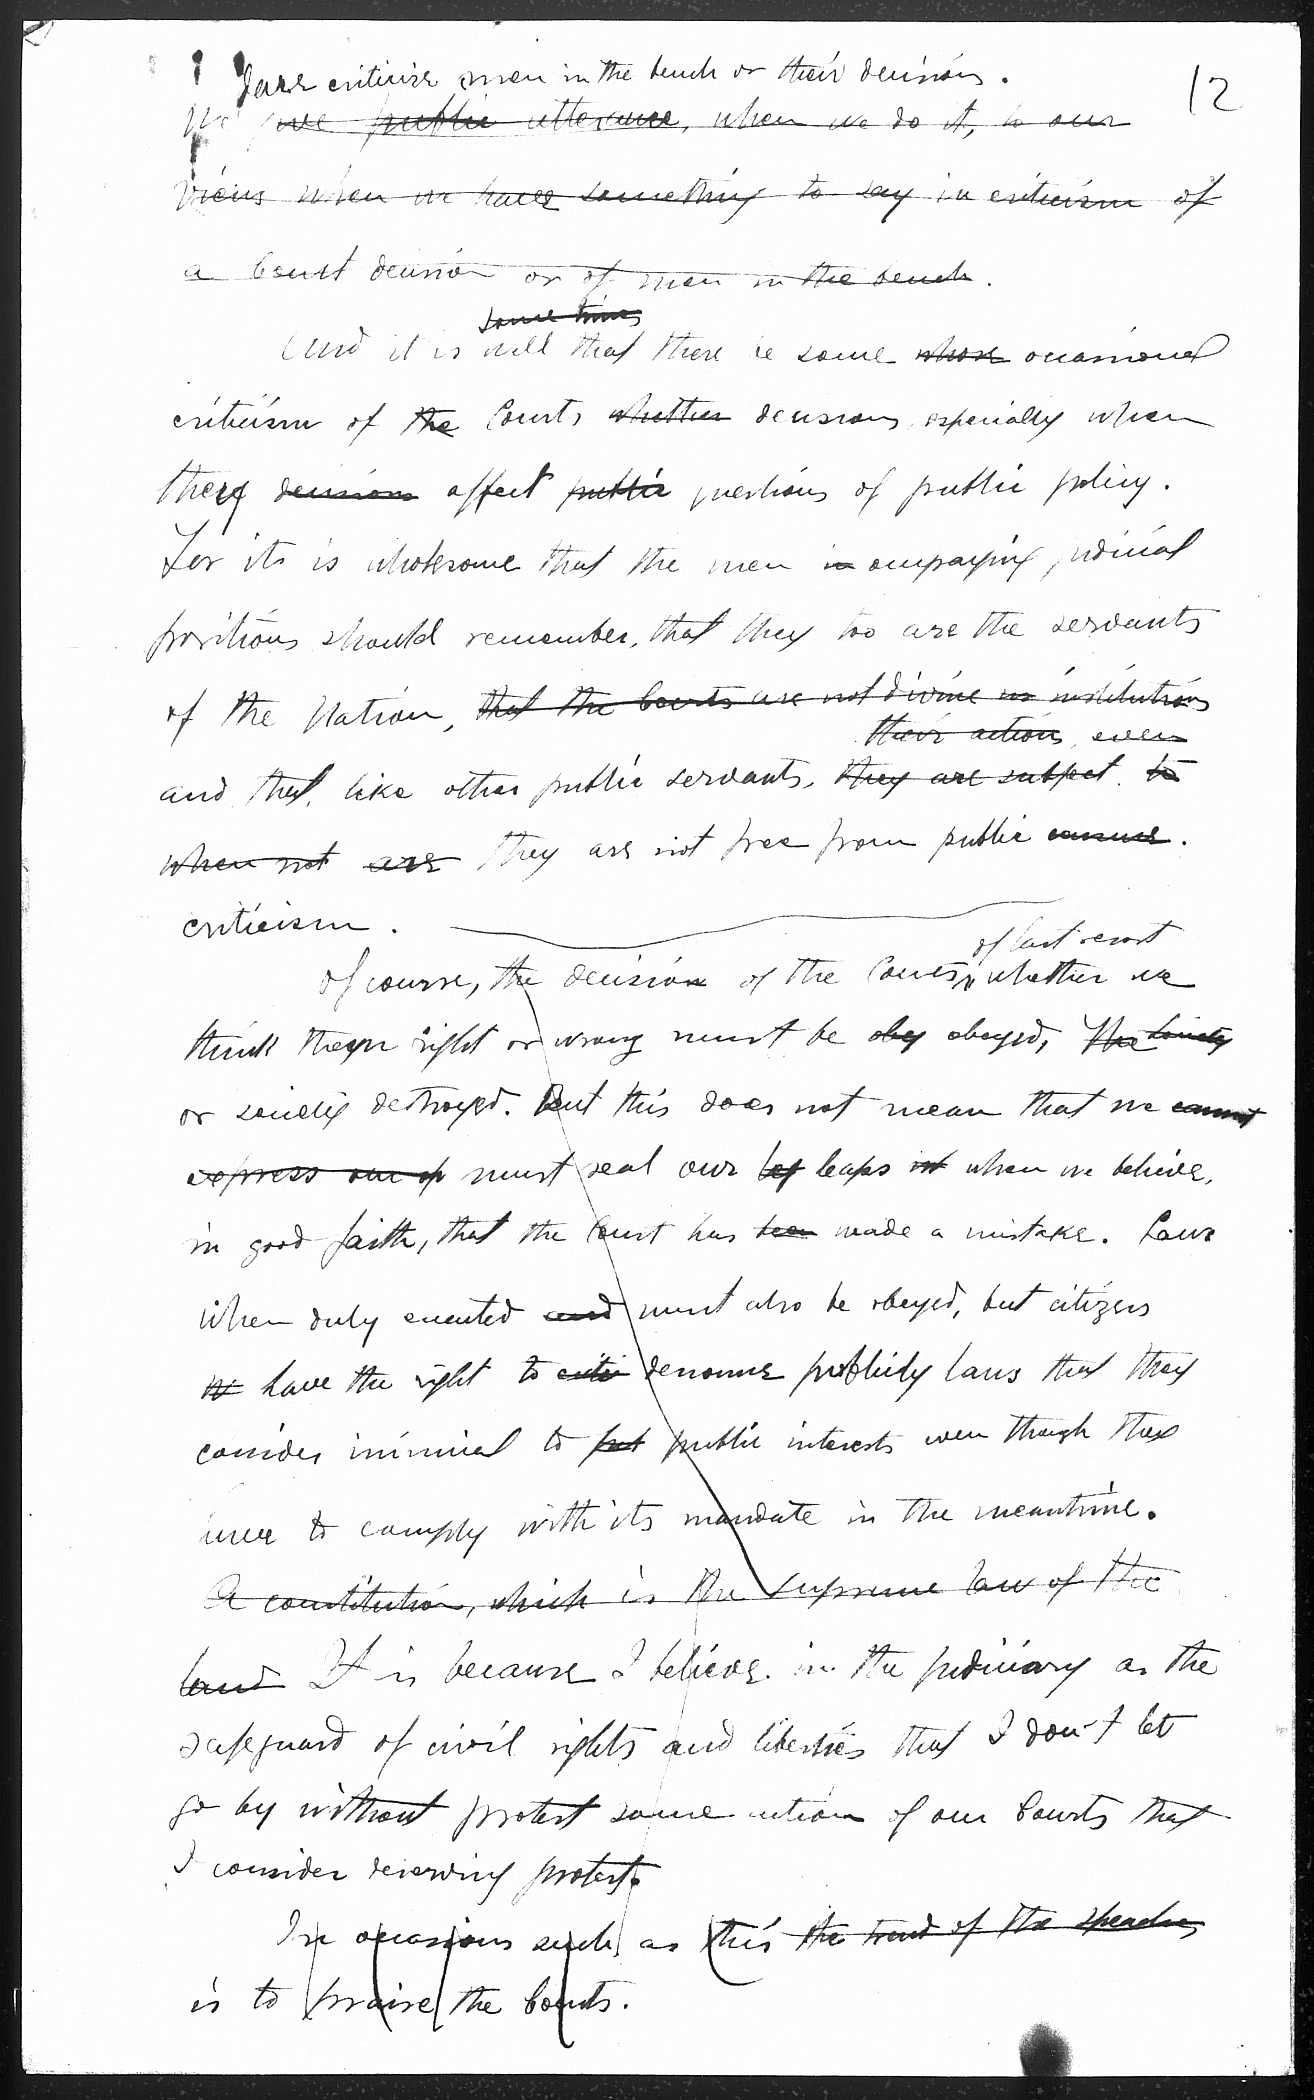 12
dare criticize men in the bench or their decisions.
We give public utterance, when we do it, to our
views when we have something to say in criticism of
a Court decision or of men in the bench.
some times
And it is well that there be some whose occasional
criticism of the Courts whether decisions especially when
they decisions affect public questions of public policy.
For its is wholesome that the men in occupaying judicial
positions should remember, that they too are the servants
of the Nation, that the Courts are not divine in institutions
their actions, even
and that, like other public servants, they are subject to
when not are they are not free from public censure.
criticism.
of last resort
Of course, the decision of the Courts, whether we
think them right or wrong must be obey obeyed, The Society
or society destroyed. But this does not mean that we cannot
express our op must seal our leaps when we believe,
in good faith, that the Court has been made a mistake. Laws
when duly enacted and must also be obeyed, but citizens
have the right to criti denounce publicly laws that they
consider inimical to put public interests even though they
have to comply with its mandate in the meantime.
A constitution, which is the supreme law of the
land It is because I believe in the judiciary as the
safeguard of civil rights and liberties that I don't let
go by without protest some action of our Courts that
I consider deserving protest.
In occasions such as this the trend of the speeches
is to praise the Courts.